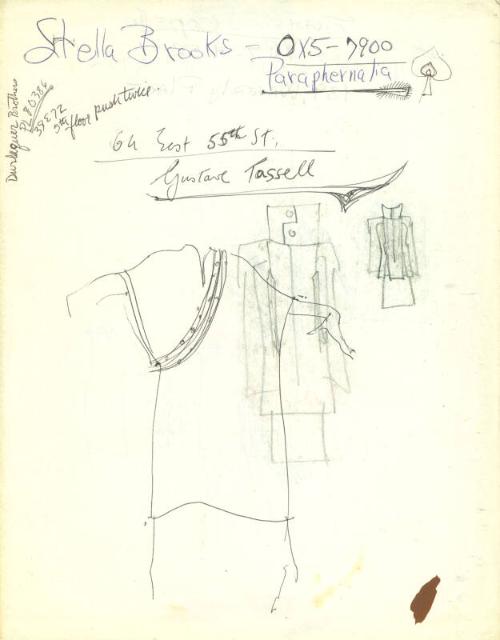 Stella Brooks - OX5-7900
Paraphernalia
Durlacher Brothers
PL 80386
39 E 72
5th floor push twice.
64 East 55th St.
Gustave Tassell